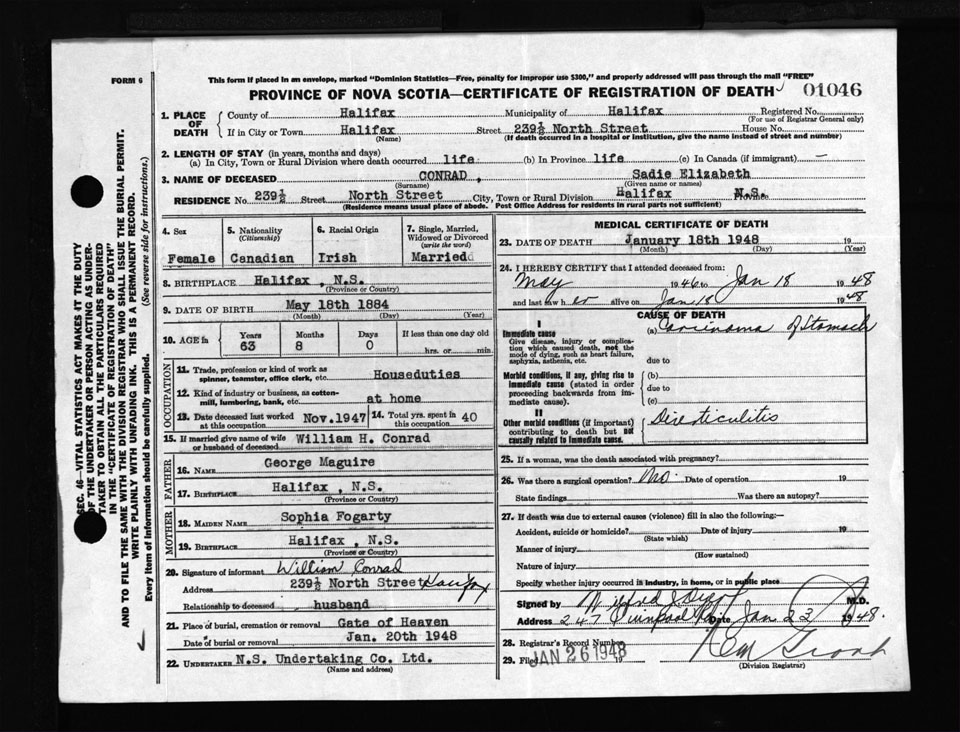 FORM 6
This form if placed in an envelope, marked "Dominion Statistics—Free, penalty for improper use $300," and properly addressed will pass through the mail "FREE"
PROVINCE OF NOVA SCOTIA—CERTIFICATE OF REGISTRATION OF DEATH 01046
1. PLACE OF DEATH
County of Halifax Municipality of Halifax Registered No.
(For use of Registrar General only)
If in City or Town Halifax Street 239½ North Street House No.
(Name) (If death occurred in a hospital or institution, give the name instead of street and number)
2. LENGTH OF STAY (in years, months and days)
(a) In City, Town or Rural Division where death occurred life (b) In Province life (c) In Canada (if immigrant) —
3. NAME OF DECEASED CONRAD, Sadie Elizabeth
(Surname) (Given name or names)
RESIDENCE No. 239½ Street North Street City, Town or Rural Division Halifax N.S. Province
(Residence means usual place of abode. Post Office Address for residents in rural parts not sufficient)
4. Sex Female
5. Nationality (Citizenship) Canadian
6. Racial Origin Irish
7. Single, Married, Widowed or Divorced (write the word) Married
8. BIRTHPLACE Halifax, N.S.
(Province or Country)
9. DATE OF BIRTH May 18th 1884
(Month) (Day) (Year)
10. AGE in Years 63 Months 8 Days 0 If less than one day old hrs. or min.
OCCUPATION
11. Trade, profession or kind of work as spinner, teamster, office clerk, etc. Houseduties
12. Kind of industry or business, as cotton-mill, lumbering, bank, etc. at home
13. Date deceased last worked at this occupation Nov.1947
14. Total yrs. spent in this occupation 40
15. If married give name of wife or husband of deceased William H. Conrad
FATHER
16. NAME George Maguire
17. BIRTHPLACE Halifax, N.S.
(Province or Country)
MOTHER
18. MAIDEN NAME Sophia Fogarty
19. BIRTHPLACE Halifax, N.S.
(Province or Country)
20. Signature of informant William Conrad
Address 239½ North Street Halifax
Relationship to deceased husband
21. Place of burial, cremation or removal Gate of Heaven
Date of burial or removal Jan. 20th 1948
22. UNDERTAKER N.S. Undertaking Co. Ltd.
(Name and address)
MEDICAL CERTIFICATE OF DEATH
23. DATE OF DEATH January 18th 1948 19
(Month) (Day) (Year)
24. I HEREBY CERTIFY that I attended deceased from:
May 1946 to Jan 18 1948
and last saw her alive on Jan 18 1948
CAUSE OF DEATH
I
Immediate cause
Give disease, injury or complication which caused death, not the mode of dying, such as heart failure, asphyxia, asthenia, etc.
(a) Carcinoma of Stomach
due to
Morbid conditions, if any, giving rise to immediate cause (stated in order proceeding backwards from immediate cause).
(b)
due to
(c)
II
Other morbid conditions (if important) contributing to death but not causally related to immediate cause.
Diverticulitis
25. If a woman, was the death associated with pregnancy?
26. Was there a surgical operation? No. Date of operation 19
State findings Was there an autopsy?
27. If death was due to external causes (violence) fill in also the following:—
Accident, suicide or homicide? Date of injury 19
(State which)
Manner of injury
(How sustained)
Nature of injury
Specify whether injury occurred in industry, in home, or in public place
Signed by M.D.
Address 247 Date Jan 23 1948.
28. Registrar's Record Number
29. Filed JAN 26 1948 19
(Division Registrar)
SEC. 46—VITAL STATISTICS ACT MAKES IT THE DUTY
OF THE UNDERTAKER OR PERSON ACTING AS UNDER-
TAKER TO OBTAIN ALL THE PARTICULARS REQUIRED
IN THE "CERTIFICATE OF REGISTRATION OF DEATH"
AND TO FILE THE SAME WITH THE DIVISION REGISTRAR WHO SHALL ISSUE THE BURIAL PERMIT.
WRITE PLAINLY WITH UNFADING INK. THIS IS A PERMANENT RECORD.
Every item of Information should be carefully supplied. (See reverse side for instructions.)